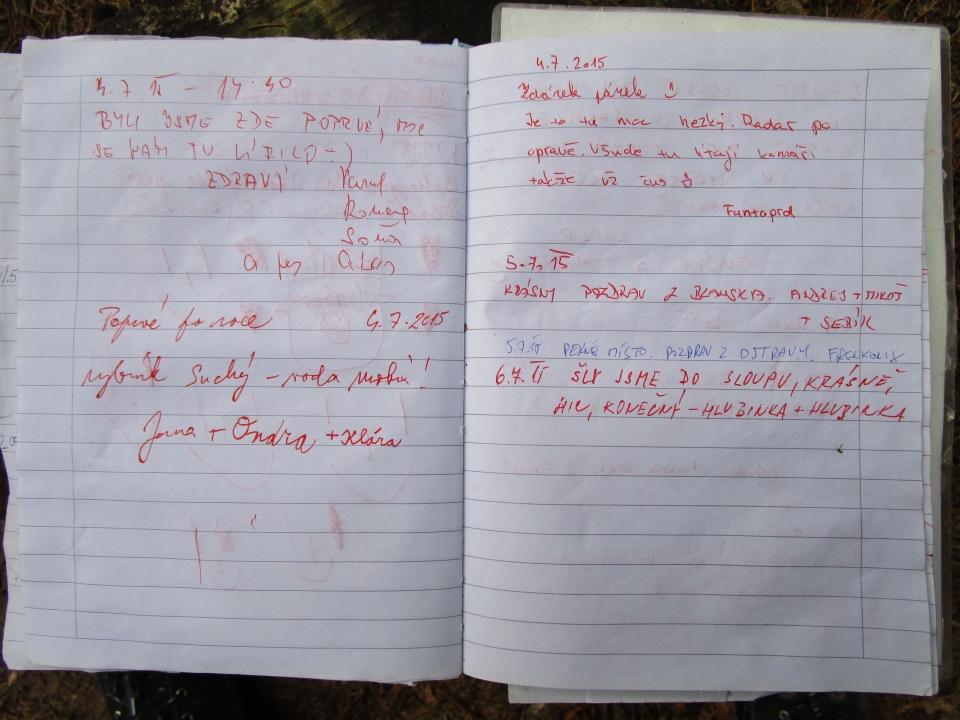 4.7 15 - 14:40
BYLI JSME ZDE POPRVÉ, MOC
SE NÁM TU LÍBILO :-)
ZDRAVÍ Pavel
Romana
Soňa
a pes
Poprvé po roce 4.7.2015
rybník Suchý - voda mokrá!
Jana + Ondra + Klára
4.7.2015
Zdárek párek
Je to tu moc hezký. Radar po
opravě. Všude tu lítají komáři
takže už čus
Funtoprd
5.7.15
KRÁSNÝ POZDRAV Z BLANSKA. ANDREJ + MIKOŠ
+ SEBÍK
5.7.15 PĚKNÉ MÍSTO. POZDRAV Z OSTRAVY.
6.7.15 ŠLY JSME DO SLOUPU, KRÁSNĚ,
HIC, KONEČNÝ - HLUBINKA + HLUBINKA